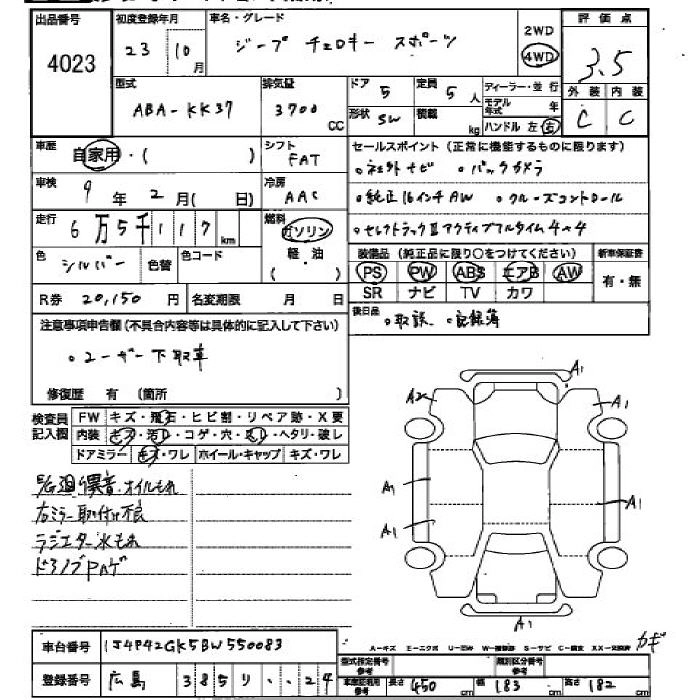 出品番号
4023
初度登録年月
23 10月
車名・グレード
ジープ チェロキー スポーツ
2WD
4WD
評価点
3.5
外装 内装
C C
型式
ABA-KK37
排気量
3700 CC
ドア 5
定員 5人
形状 SW
積載 kg
ディーラー・並行
モデル年式 年
ハンドル 左 右
車歴 自家用・( )
シフト FAT
車検 9年 2月( 日)
冷房 AAC
走行 6万5千117km
燃料 ガソリン
軽・油
( )
色 シルバー
色替
色コード
R券 20,150円
名変期限 月 日
セールスポイント (正常に機能するものに限ります)
・社外ナビ ・バックカメラ
・純正16インチAW ・クルーズコントロール
・セレクトラックⅡアクティブフルタイム4×4
装備品 (純正品に限り○をつけてください)
新車保証書
PS PW ABS エアB AW
有・無
SR ナビ TV カワ
後日品 ・取説 ・記録簿
注意事項申告欄 (不具合内容等は具体的に記入して下さい)
・ユーザー下取車
修復歴 有 (箇所 )
検査員記入欄
FW キズ・飛石・ヒビ割・リペア跡・X要
内装 キズ・汚レ・コゲ・穴・ ・ヘタリ・破レ
ドアミラー キズ・ワレ ホイール・キャップ キズ・ワレ
E/G廻 異音・オイルもれ
右ミラー取付け不良
ラジエター水もれ
ドアノブハゲ
A1
A2
A1
A1
A1
A1
A1
カギ
A-キズ E-エクボ U-凹み W-補修跡 S-サビ C-腐食 XX-交換済
車台番号 1J4P42GK5BW550083
登録番号 広島 385 り ・・24
型式指定番号 参考
類別区分番号 参考
車庫証明用 参考
長さ 450cm
幅 183cm
高さ 182cm